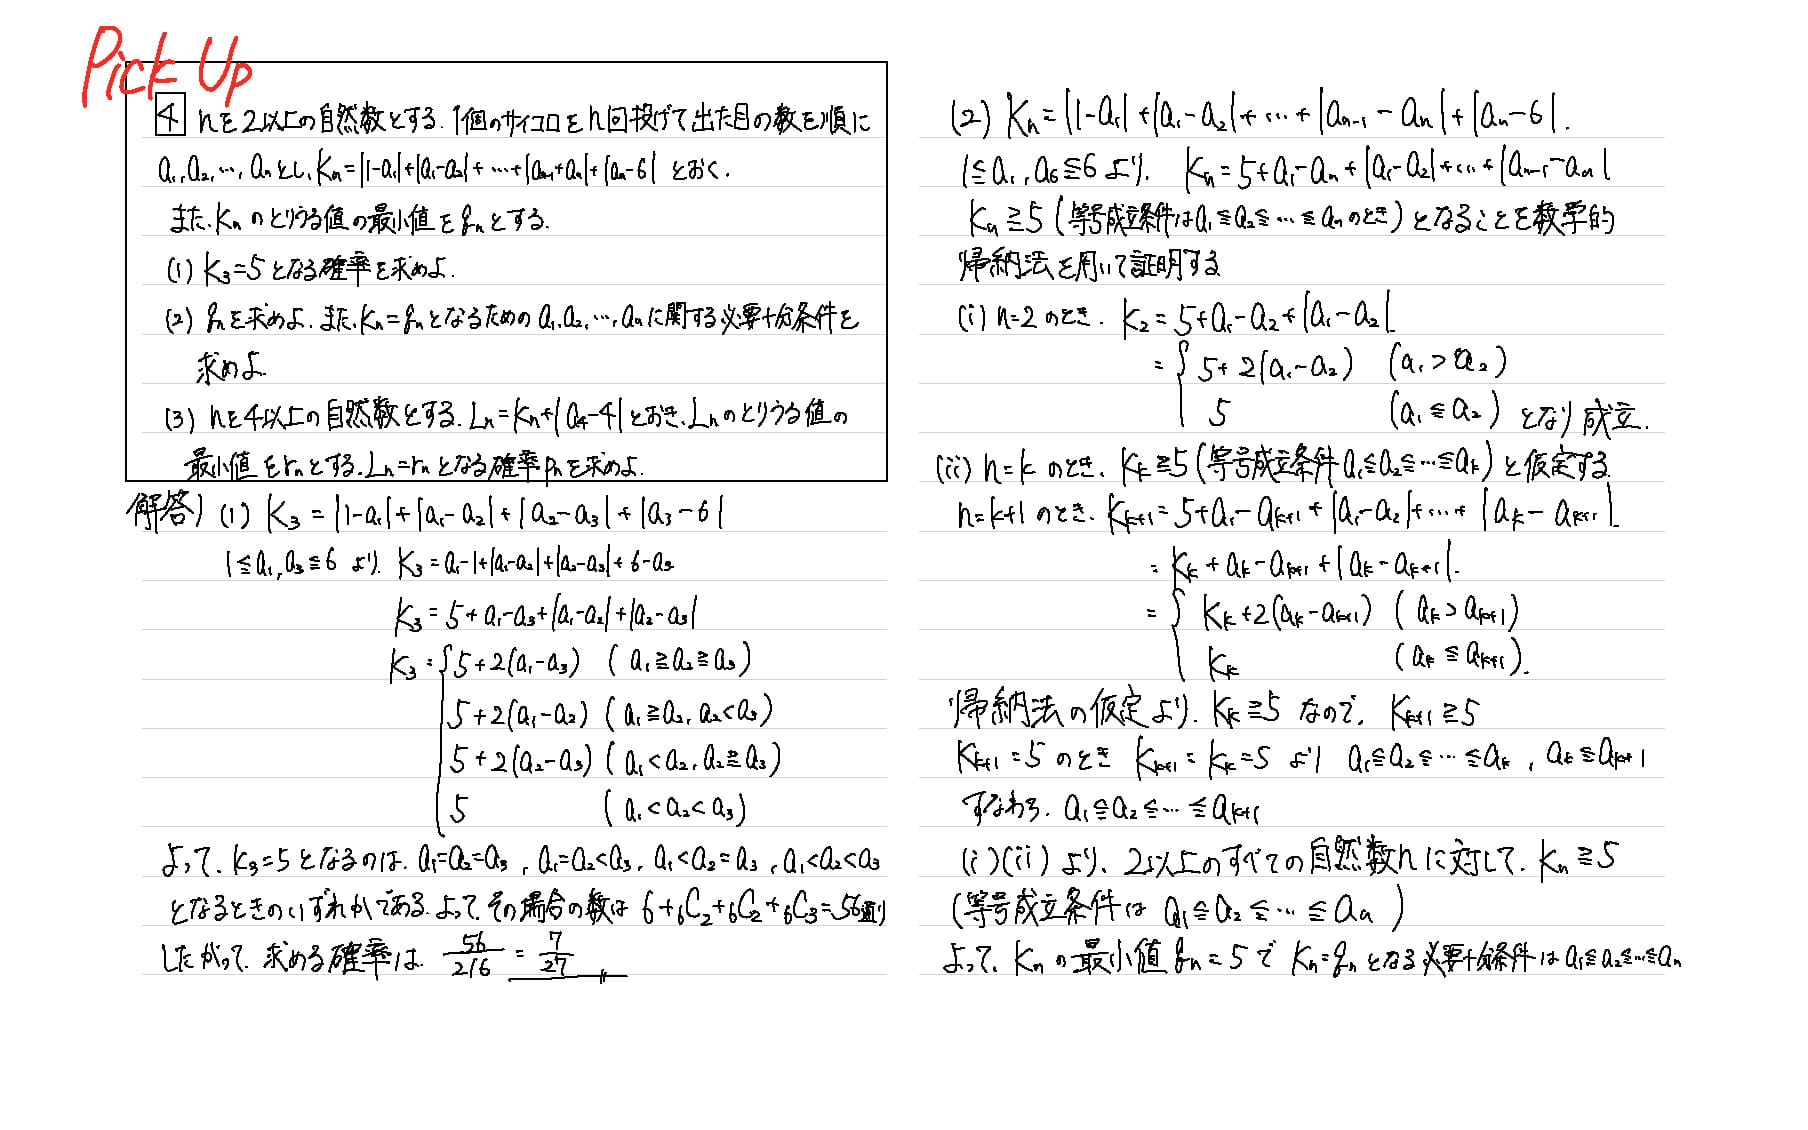 Pick Up
4 nを2以上の自然数とする.1個のサイコロをn回投げて出た目の数を順に
a₁,a₂,…,aₙとし,Kₙ=|1-a₁|+|a₁-a₂|+…+|aₙ₋₁+aₙ|+|aₙ-6| とおく.
また,Kₙのとりうる値の最小値をqₙとする.
(1) K₃=5となる確率を求めよ.
(2) qₙを求めよ.また,Kₙ=qₙとなるためのa₁,a₂,…,aₙに関する必要十分条件を
求めよ.
(3) nを4以上の自然数とする.Lₙ=Kₙ+|a₄-4|とおき,Lₙのとりうる値の
最小値をrₙとする.Lₙ=rₙとなる確率pₙを求めよ.
解答) (1) K₃=|1-a₁|+|a₁-a₂|+|a₂-a₃|+|a₃-6|
1≦a₁,a₃≦6 より, K₃=a₁-1+|a₁-a₂|+|a₂-a₃|+6-a₃
K₃=5+a₁-a₃+|a₁-a₂|+|a₂-a₃|
K₃={5+2(a₁-a₃) (a₁≧a₂≧a₃)
5+2(a₁-a₂) (a₁≧a₂, a₂<a₃)
5+2(a₂-a₃) (a₁<a₂, a₂≧a₃)
5 (a₁<a₂<a₃)
よって,K₃=5となるのは,a₁=a₂=a₃, a₁=a₂<a₃, a₁<a₂=a₃, a₁<a₂<a₃
となるときのいずれかである.よって,その場合の数は 6+₆C₂+₆C₂+₆C₃=56通り
したがって,求める確率は, 56/216=7/27
(2) Kₙ=|1-a₁|+|a₁-a₂|+…+|aₙ₋₁-aₙ|+|aₙ-6|.
1≦a₁,a₆≦6 より, Kₙ=5+a₁-aₙ+|a₁-a₂|+…+|aₙ₋₁-aₙ|
Kₙ≧5 (等号成立条件はa₁≦a₂≦…≦aₙのとき) となることを数学的
帰納法を用いて証明する
(i) n=2のとき, K₂=5+a₁-a₂+|a₁-a₂|
={5+2(a₁-a₂) (a₁>a₂)
5 (a₁≦a₂) となり成立.
(ii) n=kのとき, Kₖ≧5 (等号成立条件a₁≦a₂≦…≦aₖ) と仮定する
n=k+1のとき, Kₖ₊₁=5+a₁-aₖ₊₁+|a₁-a₂|+…+|aₖ-aₖ₊₁|
=Kₖ+aₖ-aₖ₊₁+|aₖ-aₖ₊₁|.
={Kₖ+2(aₖ-aₖ₊₁) (aₖ>aₖ₊₁)
Kₖ (aₖ≦aₖ₊₁).
帰納法の仮定より, Kₖ≧5 なので, Kₖ₊₁≧5
Kₖ₊₁=5のとき Kₖ₊₁=Kₖ=5 より a₁≦a₂≦…≦aₖ, aₖ≦aₖ₊₁
すなわち, a₁≦a₂≦…≦aₖ₊₁
(i)(ii)より, 2以上のすべての自然数nに対して, Kₙ≧5
(等号成立条件は a₁≦a₂≦…≦aₙ)
よって, Kₙの最小値qₙ=5で Kₙ=qₙとなる必要十分条件はa₁≦a₂≦…≦aₙ